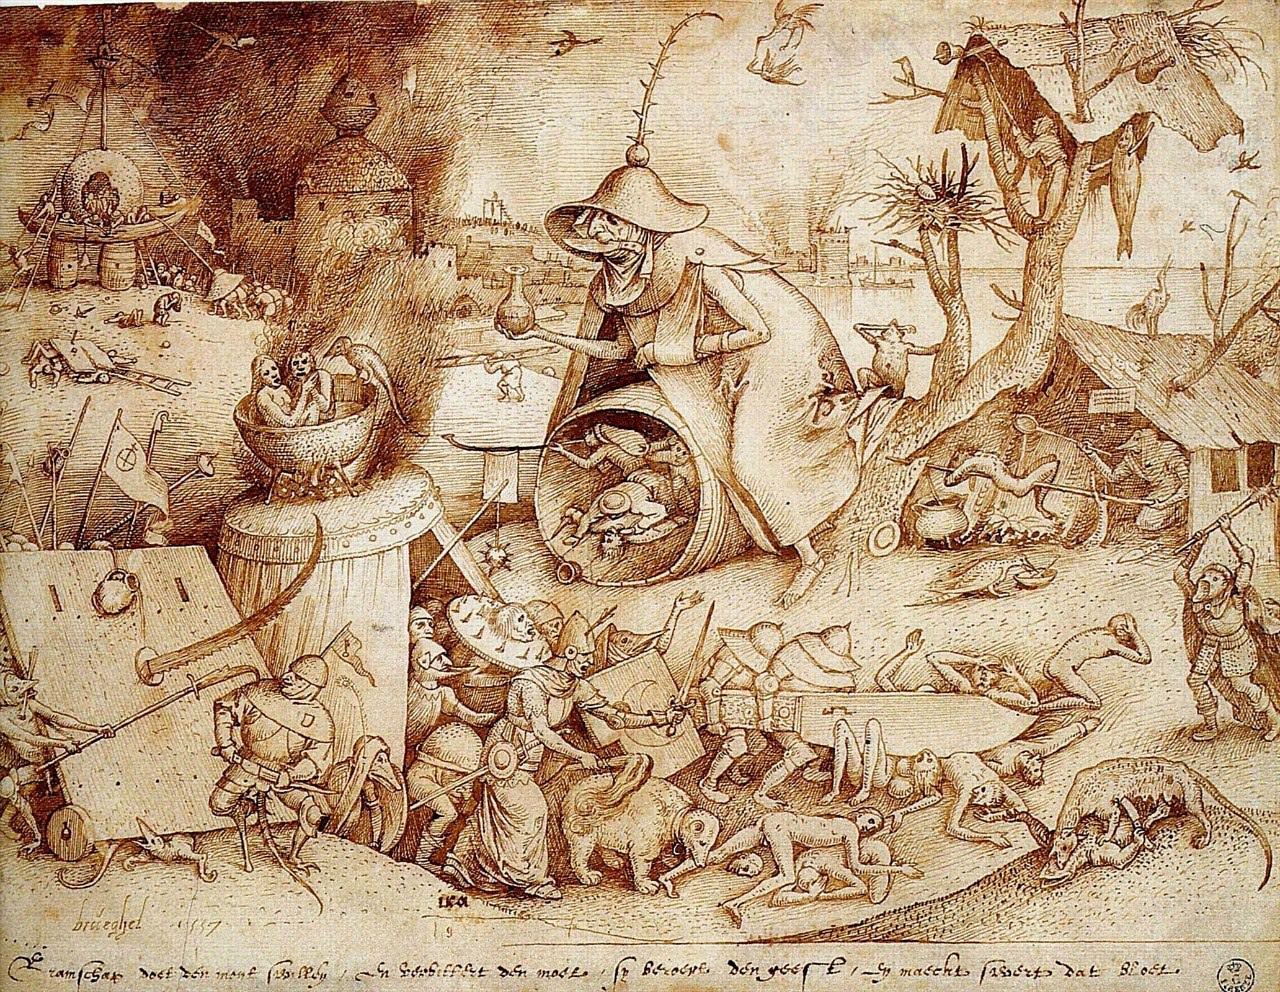 IRA
brueghel 1557
Gramschap doet den mont swillen / En verbittert den moet / sy beroert den geest / En maeckt swert dat bloet